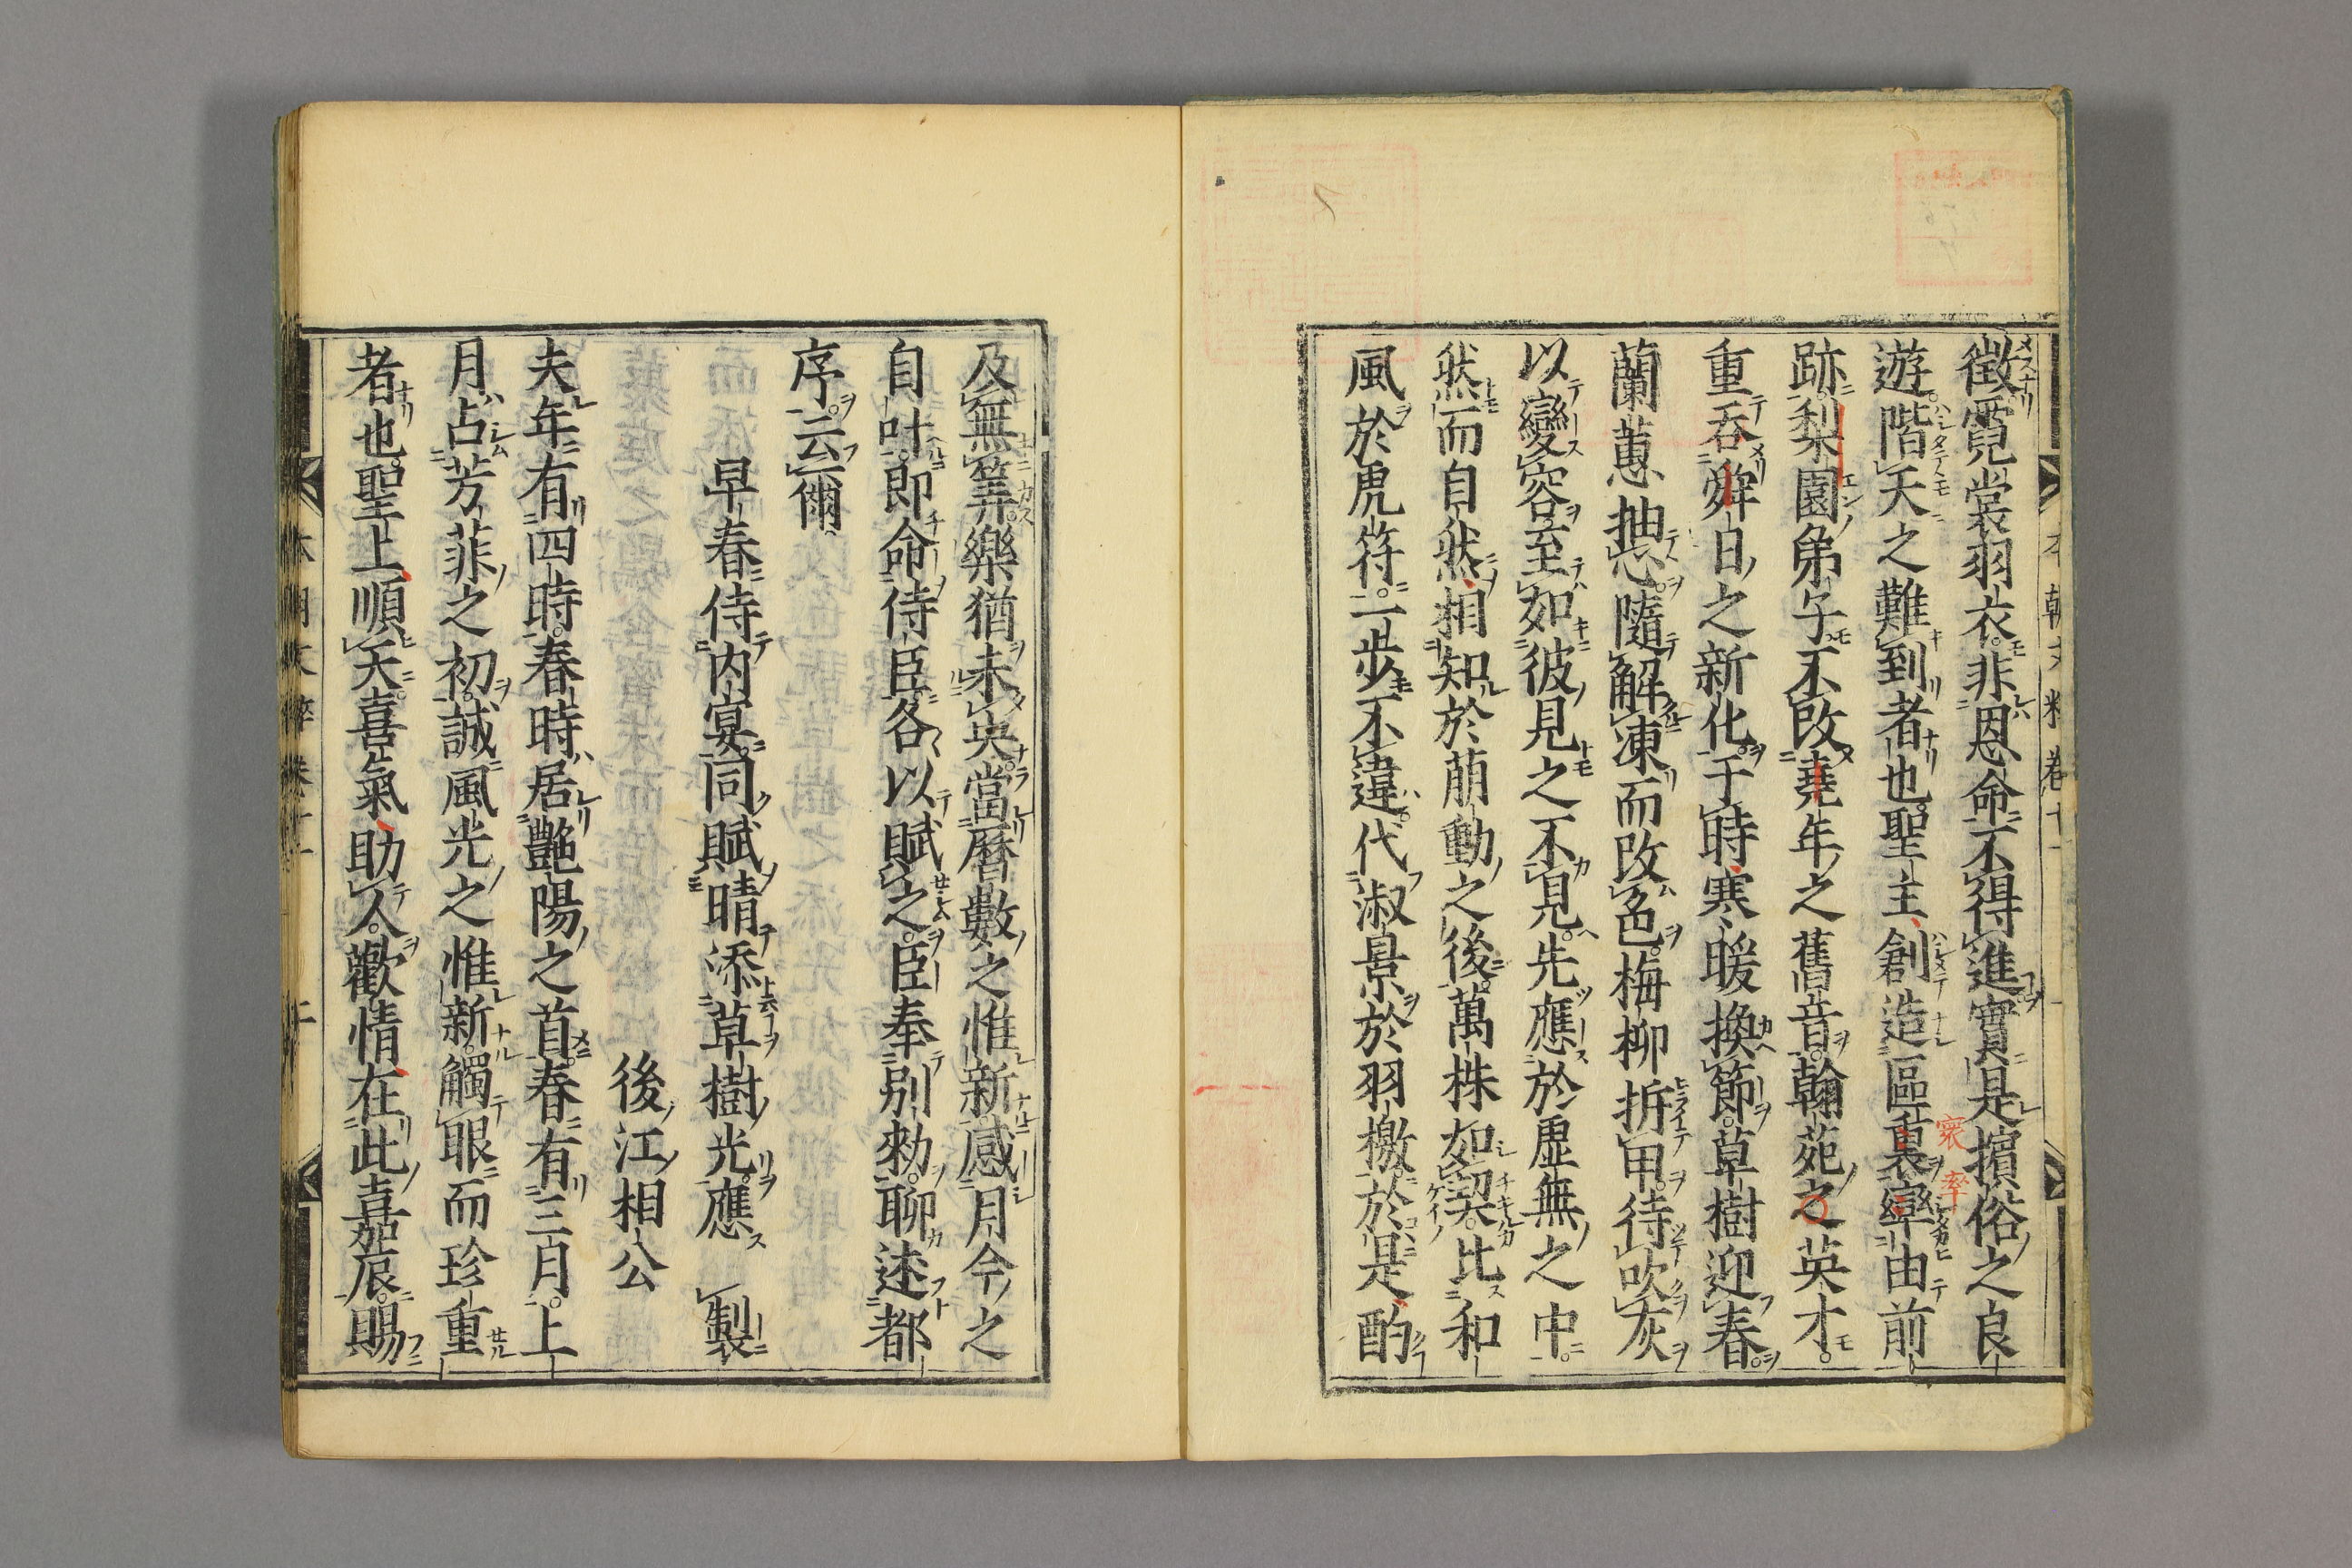 徴霓裳羽衣。非恩命不得進實是擯俗之良
遊。階天之難到者也。聖主創造區裏𦆯由前
跡。梨園弟子不改堯年之舊音。翰苑之英才。
重吞舜日之新化。于時寒暖換節。草樹迎春。
蘭蕙抽心。隨解凍而改色。梅柳拆甲。待吹灰
以變容。至如彼見之不見。先應於虚無之中。
然而自然相知於萠動之後。萬株如契。比和
風於虎符。一歩不違。代淑景於羽檄。於是酌
及無筭。樂猶未央。當暦數之惟新。感月令之
自叶。即命侍臣各以賦之。臣奉別勅。聊述都
序。云爾。
早春侍内宴。同賦晴添草樹光。應 製
後江相公
夫年有四時。春時居艶陽之首。春有三月。上
月占芳菲之初。誠風光之惟新。觸眼而珍重
者也。聖上順天。喜氣助人。歡情在此嘉辰。賜